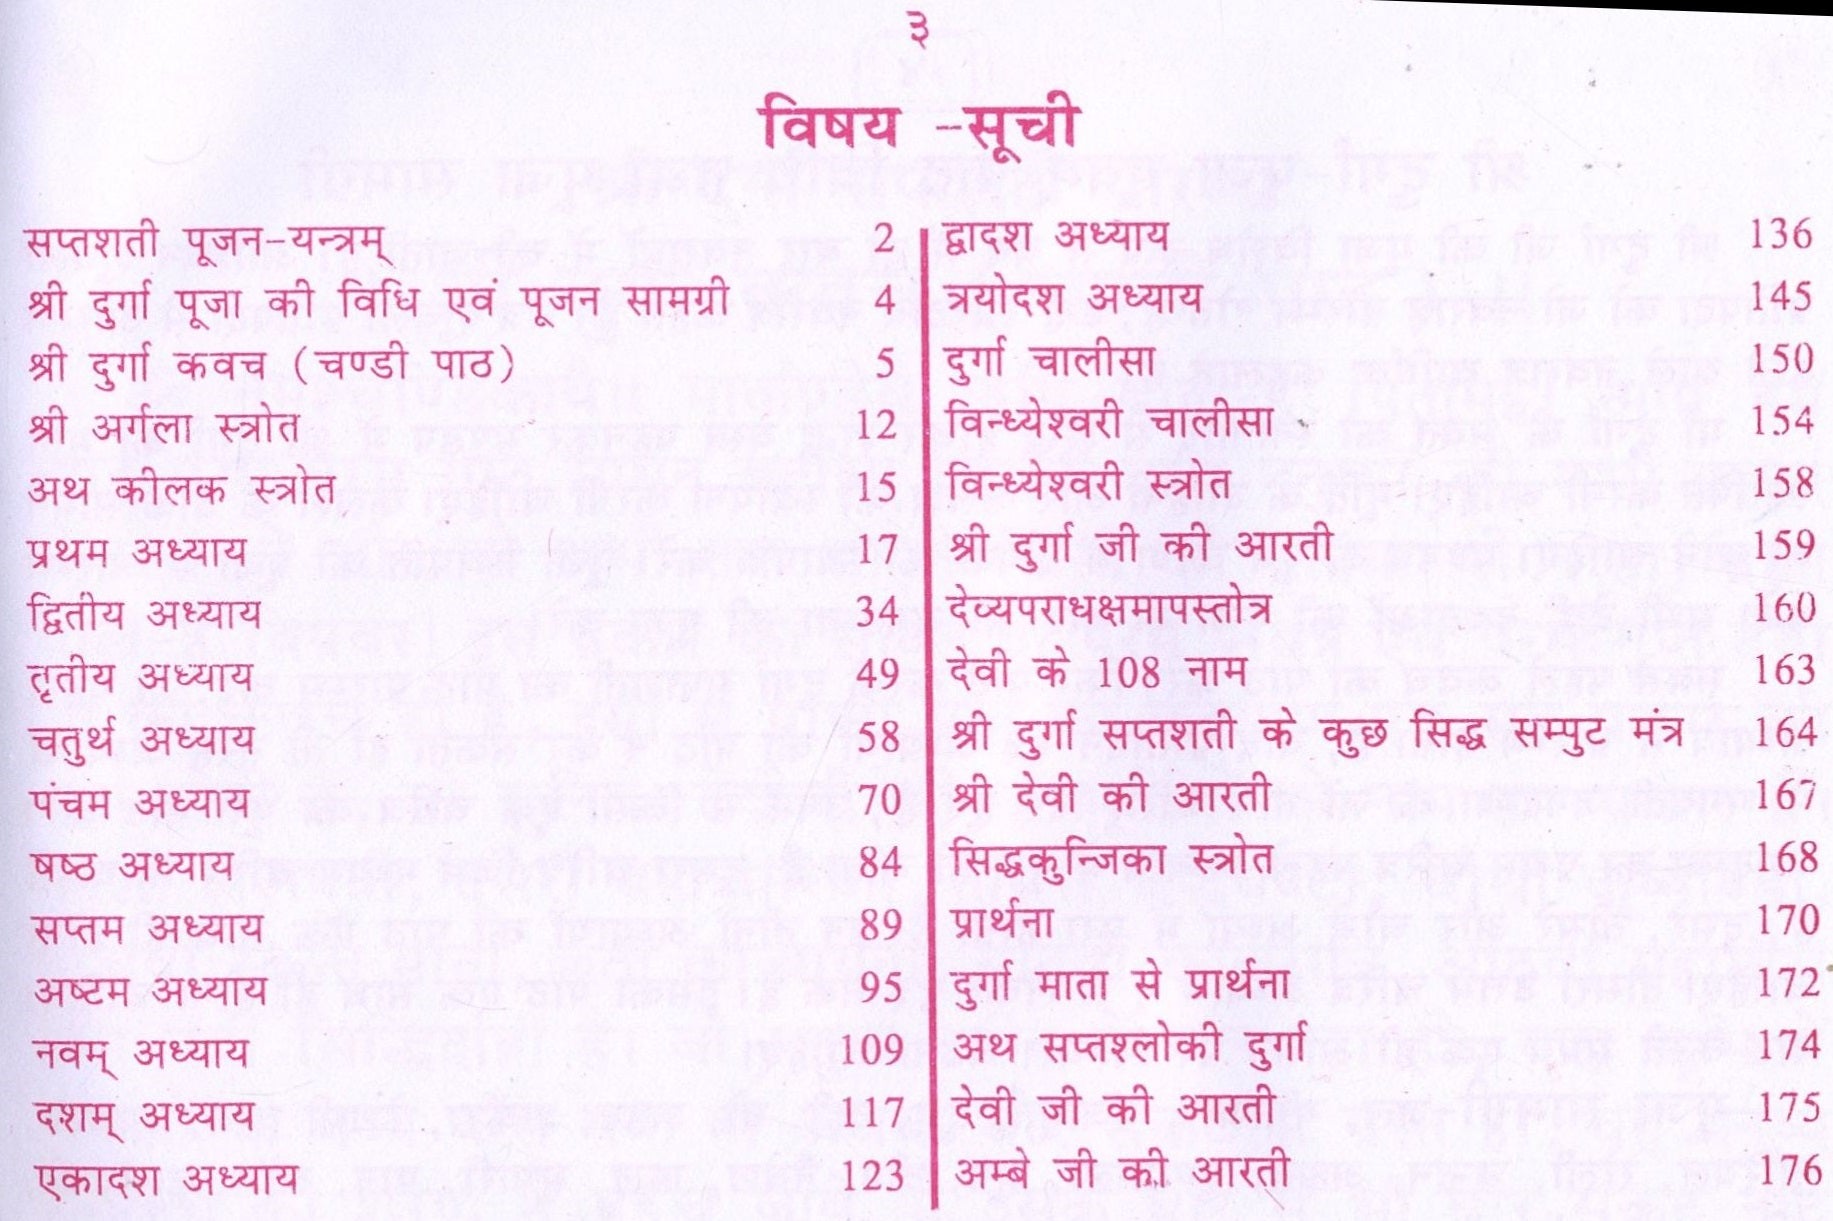 ३
विषय -सूची
सप्तशती पूजन-यन्त्रम् 2
श्री दुर्गा पूजा की विधि एवं पूजन सामग्री 4
श्री दुर्गा कवच (चण्डी पाठ) 5
श्री अर्गला स्त्रोत 12
अथ कीलक स्त्रोत 15
प्रथम अध्याय 17
द्वितीय अध्याय 34
तृतीय अध्याय 49
चतुर्थ अध्याय 58
पंचम अध्याय 70
षष्ठ अध्याय 84
सप्तम अध्याय 89
अष्टम अध्याय 95
नवम् अध्याय 109
दशम् अध्याय 117
एकादश अध्याय 123
द्वादश अध्याय 136
त्रयोदश अध्याय 145
दुर्गा चालीसा 150
विन्ध्येश्वरी चालीसा 154
विन्ध्येश्वरी स्त्रोत 158
श्री दुर्गा जी की आरती 159
देव्यपराधक्षमापस्तोत्र 160
देवी के 108 नाम 163
श्री दुर्गा सप्तशती के कुछ सिद्ध सम्पुट मंत्र 164
श्री देवी की आरती 167
सिद्धकुन्जिका स्त्रोत 168
प्रार्थना 170
दुर्गा माता से प्रार्थना 172
अथ सप्तश्लोकी दुर्गा 174
देवी जी की आरती 175
अम्बे जी की आरती 176